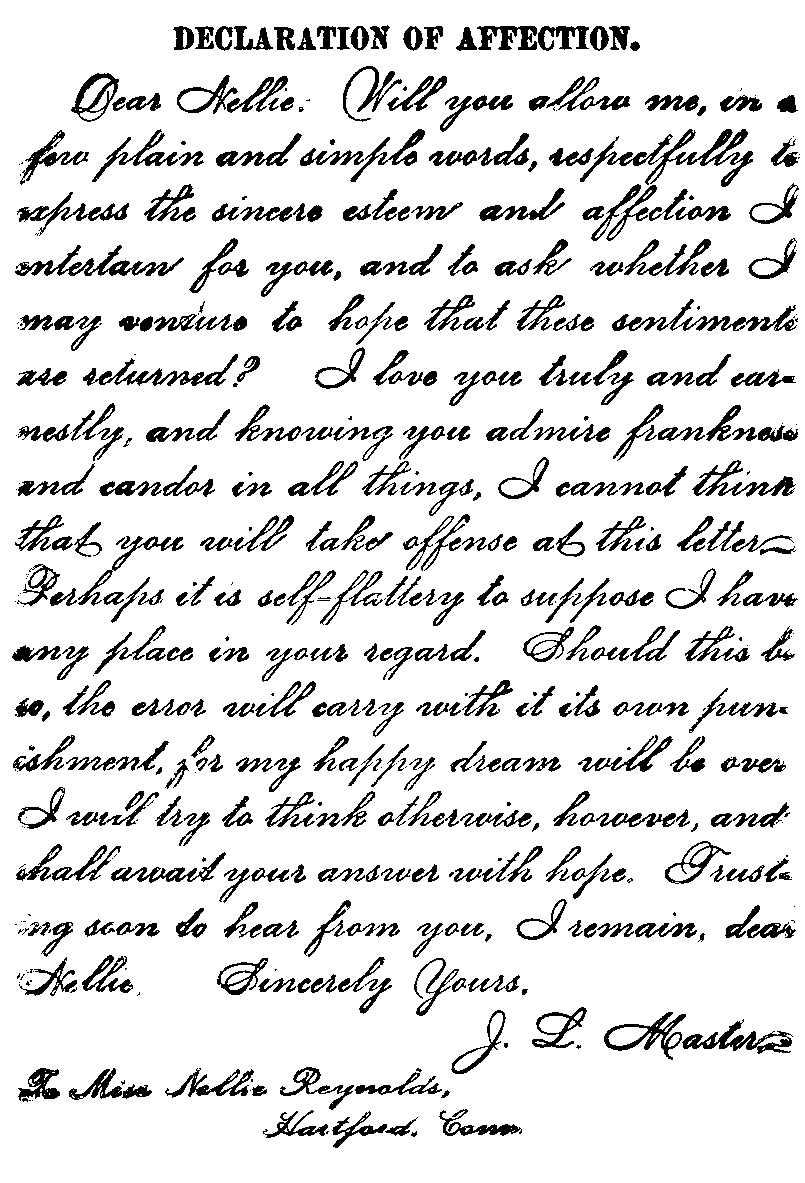 DECLARATION OF AFFECTION.
Dear Nellie: Will you allow me, in a
few plain and simple words, respectfully to
express the sincere esteem and affection I
entertain for you, and to ask whether I
may venture to hope that these sentiments
are returned? I love you truly and ear-
nestly, and knowing you admire frankness
and candor in all things, I cannot think
that you will take offense at this letter
Perhaps it is self-flattery to suppose I have
any place in your regard. Should this be
so, the error will carry with it its own pun-
ishment, for my happy dream will be over
I will try to think otherwise, however, and
shall await your answer with hope. Trust-
ing soon to hear from you, I remain, dear
Nellie. Sincerely Yours.
J. L. Masters
To Miss Nellie Reynolds,
Hartford. Conn.